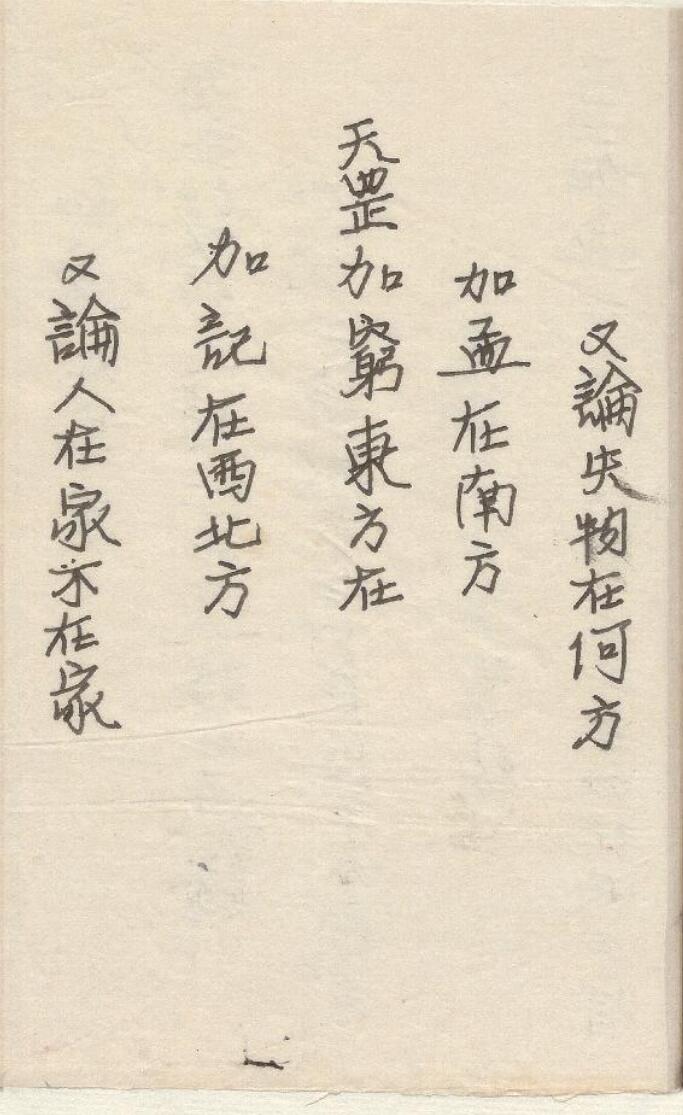 又論失物在何方
加孟在南方
天罡加窮東方在
加記在西北方
又論人在家不在家